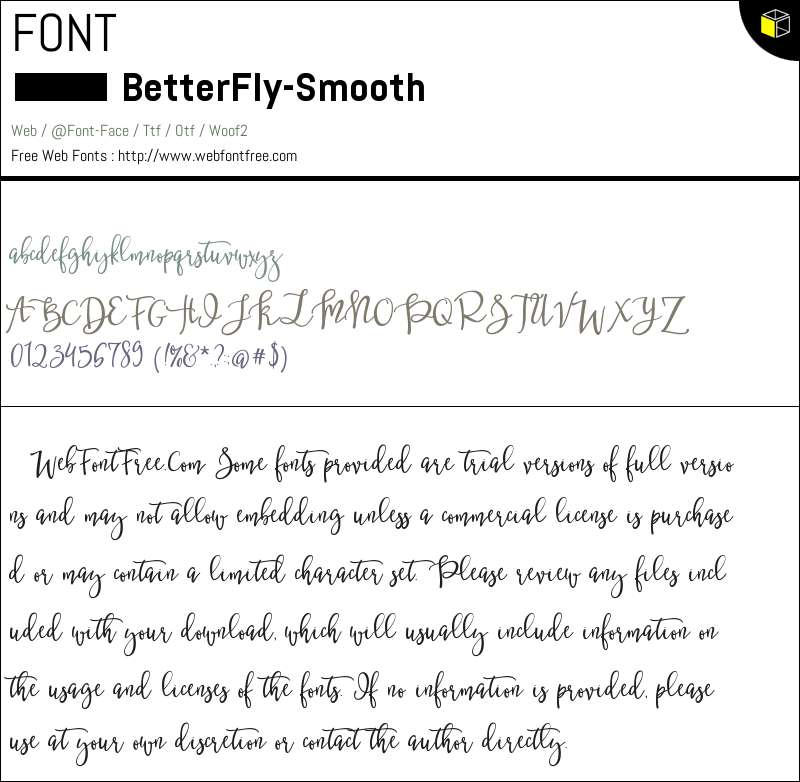 FONT
BetterFly-Smooth
Web / @Font-Face / Ttf / Otf / Woof2
Free Web Fonts : http://www.webfontfree.com
abcdefghyklmnopqrstuvwxyz
ABCDEFGHIJKLMNOPQRSTUVWXYZ
0123456789 (!%&*.?:;@#$)
WebFontFree.Com Some fonts provided are trial versions of full versio
ns and may not allow embedding unless a commercial license is purchase
d or may contain a limited character set. Please review any files incl
uded with your download, which will usually include information on
the usage and licenses of the fonts. If no information is provided, please
use at your own discretion or contact the author directly.